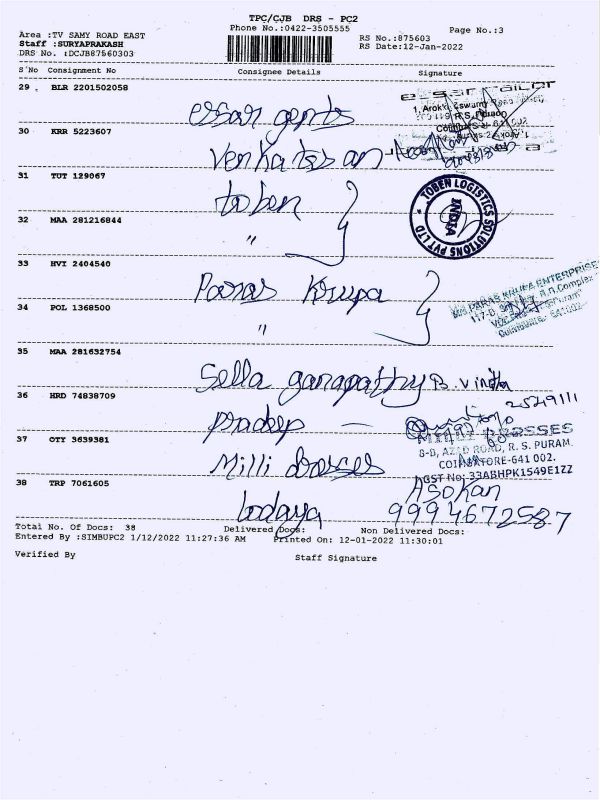 TPC/CJB DRS - PC2
Phone No.:0422-3505555
Page No.:3
Area :TV SAMY ROAD EAST
Staff :SURYAPRAKASH
DRS No. :DCJB87560303
RS No.:875603
RS Date:12-Jan-2022
S'No Consignment No Consignee Details Signature
29 . BLR 2201502058
essar gents
30 KRR 5223607
Venkatesan
31 TUT 129067
toben
TOBEN LOGISTICS SOLUTIONS PVT LTD
INDIA
32 MAA 281216844
"
33 HVT 2404540
Paras Krupa
34 POL 1368500
"
35 MAA 281632754
Sella ganapathy
36 HRD 74838709
pradeep
37 OTY 3639381
Milli dresses
8-B, AZAD ROAD, R. S. PURAM.
COIMBATORE-641 002.
GST No: 33ABHPK1549E1ZZ
38 TRP 7061605
lodaya
Asokan
9994672587
Total No. Of Docs: 38 Delivered Docs: Non Delivered Docs:
Entered By :SIMBUPC2 1/12/2022 11:27:36 AM Printed On: 12-01-2022 11:30:01
Verified By Staff Signature